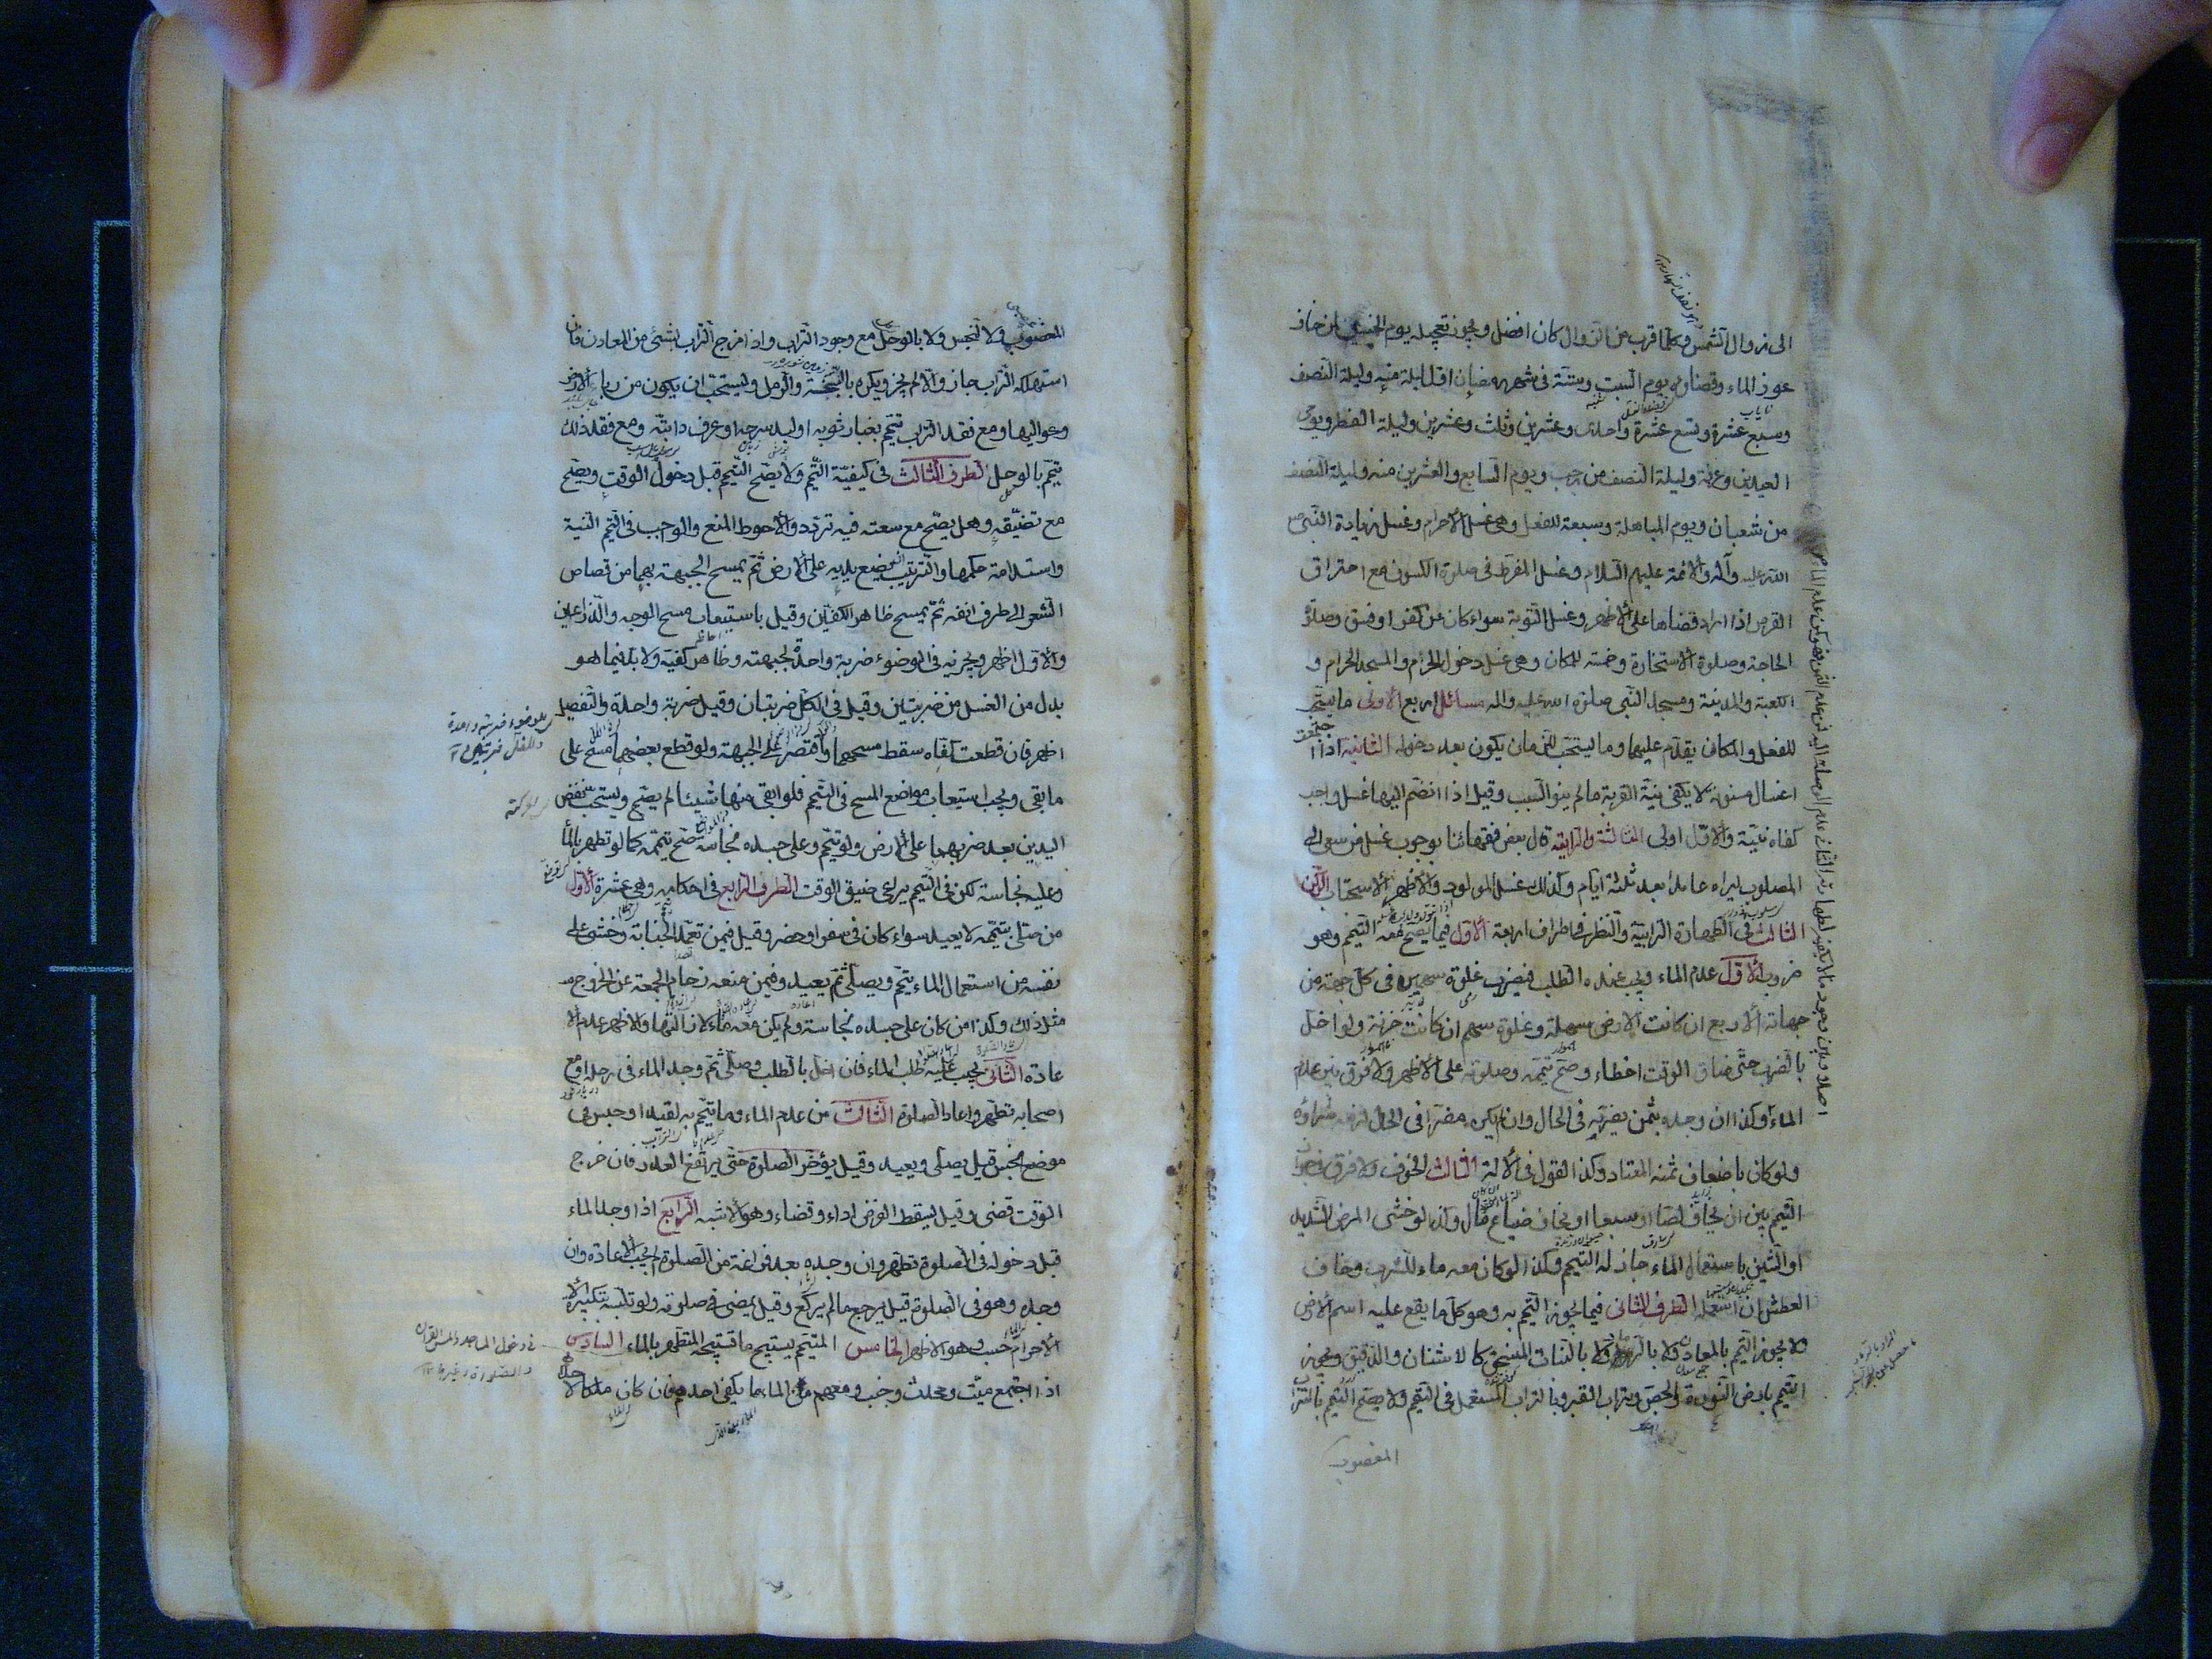 الى زوال الشمس وكلما قرب من الزوال كان افضل ويجوز تعجيله يوم الخميس لمن خاف
عوز الماء وقضاؤه يوم السبت وستة في شهر رمضان اول ليلة منه وليلة النصف
وسبع عشرة وتسع عشرة واحدى وعشرين وثلث وعشرين وليلة الفطر ويومى
العيدين وعرفة وليلة النصف من رجب ويوم السابع والعشرين منه وليلة النصف
من شعبان ويوم المباهلة وسبعة للفعل وهى غسل الاحرام وغسل زيادة النبى ص
الله عليه وآله والائمة عليهم السلام وغسل المفرط فى صلوة الكسوف مع احتراق
القرص اذا اراد قضاها على الاظهر وغسل التوبة سواء كان عن كفر او فسق وصلوة
الحاجة وصلوة الاستخارة وخمسة للمكان وهى غسل دخول الحرم والمسجد الحرام و
الكعبة والمدينة ومسجد النبى صلوة الله عليه واله مسائل اربع الاولى ما يستحب
للفعل والمكان يقدم عليهما وما يستحب للزمان يكون بعد دخوله الثانية اذا اجتمعت
اغسال مسنونة لا يكفى نية القربة ما لم ينو السبب وقيل اذا انضم اليها غسل واجب
كفاه نية والاول اولى الثالثة والرابعة قال بعض فقهائنا بوجوب غسل من سعى الى
المصلوب ليراه عامدا بعد ثلثة ايام وكذلك غسل المولود والاظهر الاستحباب الركن
الثالث فى الطهارة الترابية والنظر فى اطراف اربعة الاول فيما يصح معه التيمم وهو
ضروب الاول عدم الماء ويجب عنده الطلب فيضرب غلوة سهمين فى كل جهة من
جهاته الاربع ان كانت الارض سهلة وغلوة سهم ان كانت حزنة ولو اخل
بالضرب حتى ضاق الوقت اخطاء وصح تيممه وصلوته على الاظهر ولا فرق بين عدم
الماء وكذا ان وجده بثمن يضر به فى الحال وان لم يكن مضرا فى الحال لزمه شراؤه
ولو كان باضعاف ثمنه المعتاد وكذا القول فى الالة الثالث الخوف ولا فرق فى جواز
التيمم بين ان يخاف لصا او سبعا او يخاف ضياع مال وكذا لو خشى المرض الشديد
او الشين باستعمال الماء جاز له التيمم وكذا لو كان معه ماء للشرب وخاف
العطش ان استعمله الطرف الثانى فيما يجوز التيمم به وهو كل ما يقع عليه اسم الارض
ولا يجوز التيمم بالمعادن ولا بالرماد ولا بالنبات المنسحق كالاشنان والدقيق ويجوز
التيمم بارض النورة والجص وبتراب القبر وبالتراب المستعمل فى التيمم ولا يصح التيمم بالتراب
المغصوب
المغصوب ولا النجس ولا بالوحل مع وجود التراب واذا امزج التراب بشئ من المعادن فان
استهلكه التراب جاز والا لم يجز ويكره بالسبخة والرمل ويستحب ان يكون من ربا الارض
وعواليها ومع فقد التراب تيمم بغبار ثوبه او لبد سرجه او عرف دابته ومع فقد ذلك
تيمم بالوحل الطرف الثالث فى كيفية التيمم ولا يصح التيمم قبل دخول الوقت ويصح
مع تضيقه وهل يصح مع سعته فيه تردد والاحوط المنع والواجب فى التيمم النية
واستدامة حكمها والترتيب يضع يديه على الارض ثم يمسح الجبهة بهما من قصاص
الشعر الى طرف انفه ثم يمسح ظاهر الكفين وقيل باستيعاب مسح الوجه والذراعين
والاول اظهر ويجزيه فى الوضوء ضربة واحدة لجبهته وظاهر كفيه ولا بد فيما هو
بدل من الغسل من ضربتين وقيل فى الكل ضربتان وقيل ضربة واحدة والتفصيل
اظهر فان قطعت كفاه سقط مسحهما واقتصر على الجبهة ولو قطع بعضهما مسح على
ما بقى ويجب استيعاب مواضع المسح فى التيمم فلو ابقى منها شيئا لم يصح ويستحب نفض
اليدين بعد ضربهما على الارض ولو تيمم وعلى جسده نجاسة صح تيممه كما لو تطهر بالماء
وعليه نجاسة لكن فى التيمم يراعى ضيق الوقت الطرف الرابع فى احكامه وهى عشرة الاول
من صلى بتيممه لا يعيد سواء كان فى سفر او حضر وقيل فيمن تعمد الجنابة وخشى على
نفسه من استعمال الماء يتيمم ويصلى ثم يعيد وفيمن منعه زحام الجمعة عن الخروج
مثل ذلك وكذا من كان على جسده نجاسة ولم يكن معه ماء لازالتها والاظهر عدم الا
عادة الثانى يجب عليه طلب الماء فان اخل بالطلب وصلى ثم وجد الماء فى رحله او مع
اصحابه تطهر واعاد الصلوة الثالث من عدم الماء وما تيمم به لقيد او حبس فى
موضع نجس قيل يصلى ويعيد وقيل يؤخر الصلوة حتى يرتفع العذر فان خرج
الوقت قضى وقيل يسقط الفرض اداء وقضاء وهو الاشبه الرابع اذا وجد الماء
قبل دخوله فى الصلوة تطهر وان وجده بعد فراغه من الصلوة لم يجب الاعادة وان
وجده وهو فى الصلوة قيل يرجع ما لم يركع وقيل يمضى فى صلوته ولو تلبس بتكبيرة
الاحرام حسب وهو الاظهر الخامس المتيمم يستبيح ما يستبيحه المتطهر بالماء السادس
اذا اجتمع ميت ومحدث وجنب ومعهم من الماء ما يكفى احدهم فان كان ملكا لاحدهم